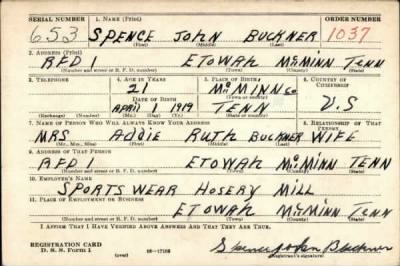 SERIAL NUMBER 1. NAME (Print) ORDER NUMBER
653 SPENCE JOHN BUCKNER 1037
(First) (Middle) (Last)
2. ADDRESS (Print)
RFD 1 ETOWAH McMINN TENN
(Number and street or R. F. D. number) (Town) (County) (State)
3. TELEPHONE 4. AGE IN YEARS 5. PLACE OF BIRTH 6. COUNTRY OF CITIZENSHIP
21 McMINN CO
DATE OF BIRTH (Town or county)
APRIL 1 1919 TENN U.S
(Exchange) (Number) (Mo.) (Day) (Yr.) (State or country)
7. NAME OF PERSON WHO WILL ALWAYS KNOW YOUR ADDRESS 8. RELATIONSHIP OF THAT PERSON
MRS ADDIE RUTH BUCKNER WIFE
(Mr., Mrs., Miss) (First) (Middle) (Last)
9. ADDRESS OF THAT PERSON
RFD 1 ETOWAH McMINN TENN
(Number and street or R. F. D. number) (Town) (County) (State)
10. EMPLOYER'S NAME
SPORTS WEAR HOSERY MILL
11. PLACE OF EMPLOYMENT OR BUSINESS
ETOWAH McMINN TENN
(Number and street or R. F. D. number) (Town) (County) (State)
I AFFIRM THAT I HAVE VERIFIED ABOVE ANSWERS AND THAT THEY ARE TRUE.
REGISTRATION CARD
D. S. S. Form 1 (over) 16—17105 Spence John Buckner
(Registrant's signature)